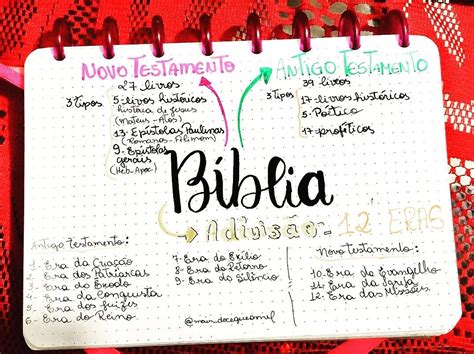 NOVO TESTAMENTO
27 livros
3 tipos
5 - livros históricos
história de Jesus
(Mateus - Atos)
13 - Epístolas Paulinas
(Romanos - Filemom)
9 - Epístolas
gerais
(Heb - Apoc)
ANTIGO TESTAMENTO
39 livros
3 tipos
17 - livros históricos
5 - Poético
17 - proféticos
Bíblia
A divisão - 12 ERAS
Antigo testamento:
1 - Era da Criação
2 - Era dos Patriarcas
3 - Era do Êxodo
4 - Era da Conquista
5 - Era dos juízes
6 - Era do Reino
7 - Era do Exílio
8 - Era do Retorno
9 - Era do Silêncio
Novo testamento:
10. Era do Evangelho
11 - Era da Igreja
12. Era das Missões